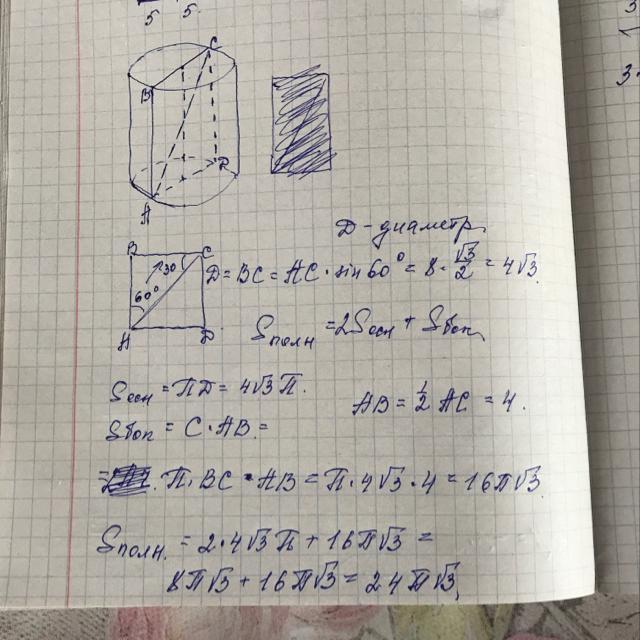 5 5.
C
B
D
A
D - диаметр
B C
30
60°
A D
D = BC = AC · sin 60° = 8 · √3/2 = 4√3.
Sполн = 2Sосн + Sбоп
Sосн = ПD = 4√3 П.
AB = 1/2 AC = 4.
Sбоп = C · AB =
= П · BC · AB = П · 4√3 · 4 = 16π√3
Sполн. = 2 · 4√3 П + 16π√3 =
8π√3 + 16π√3 = 24π√3
3
1
3